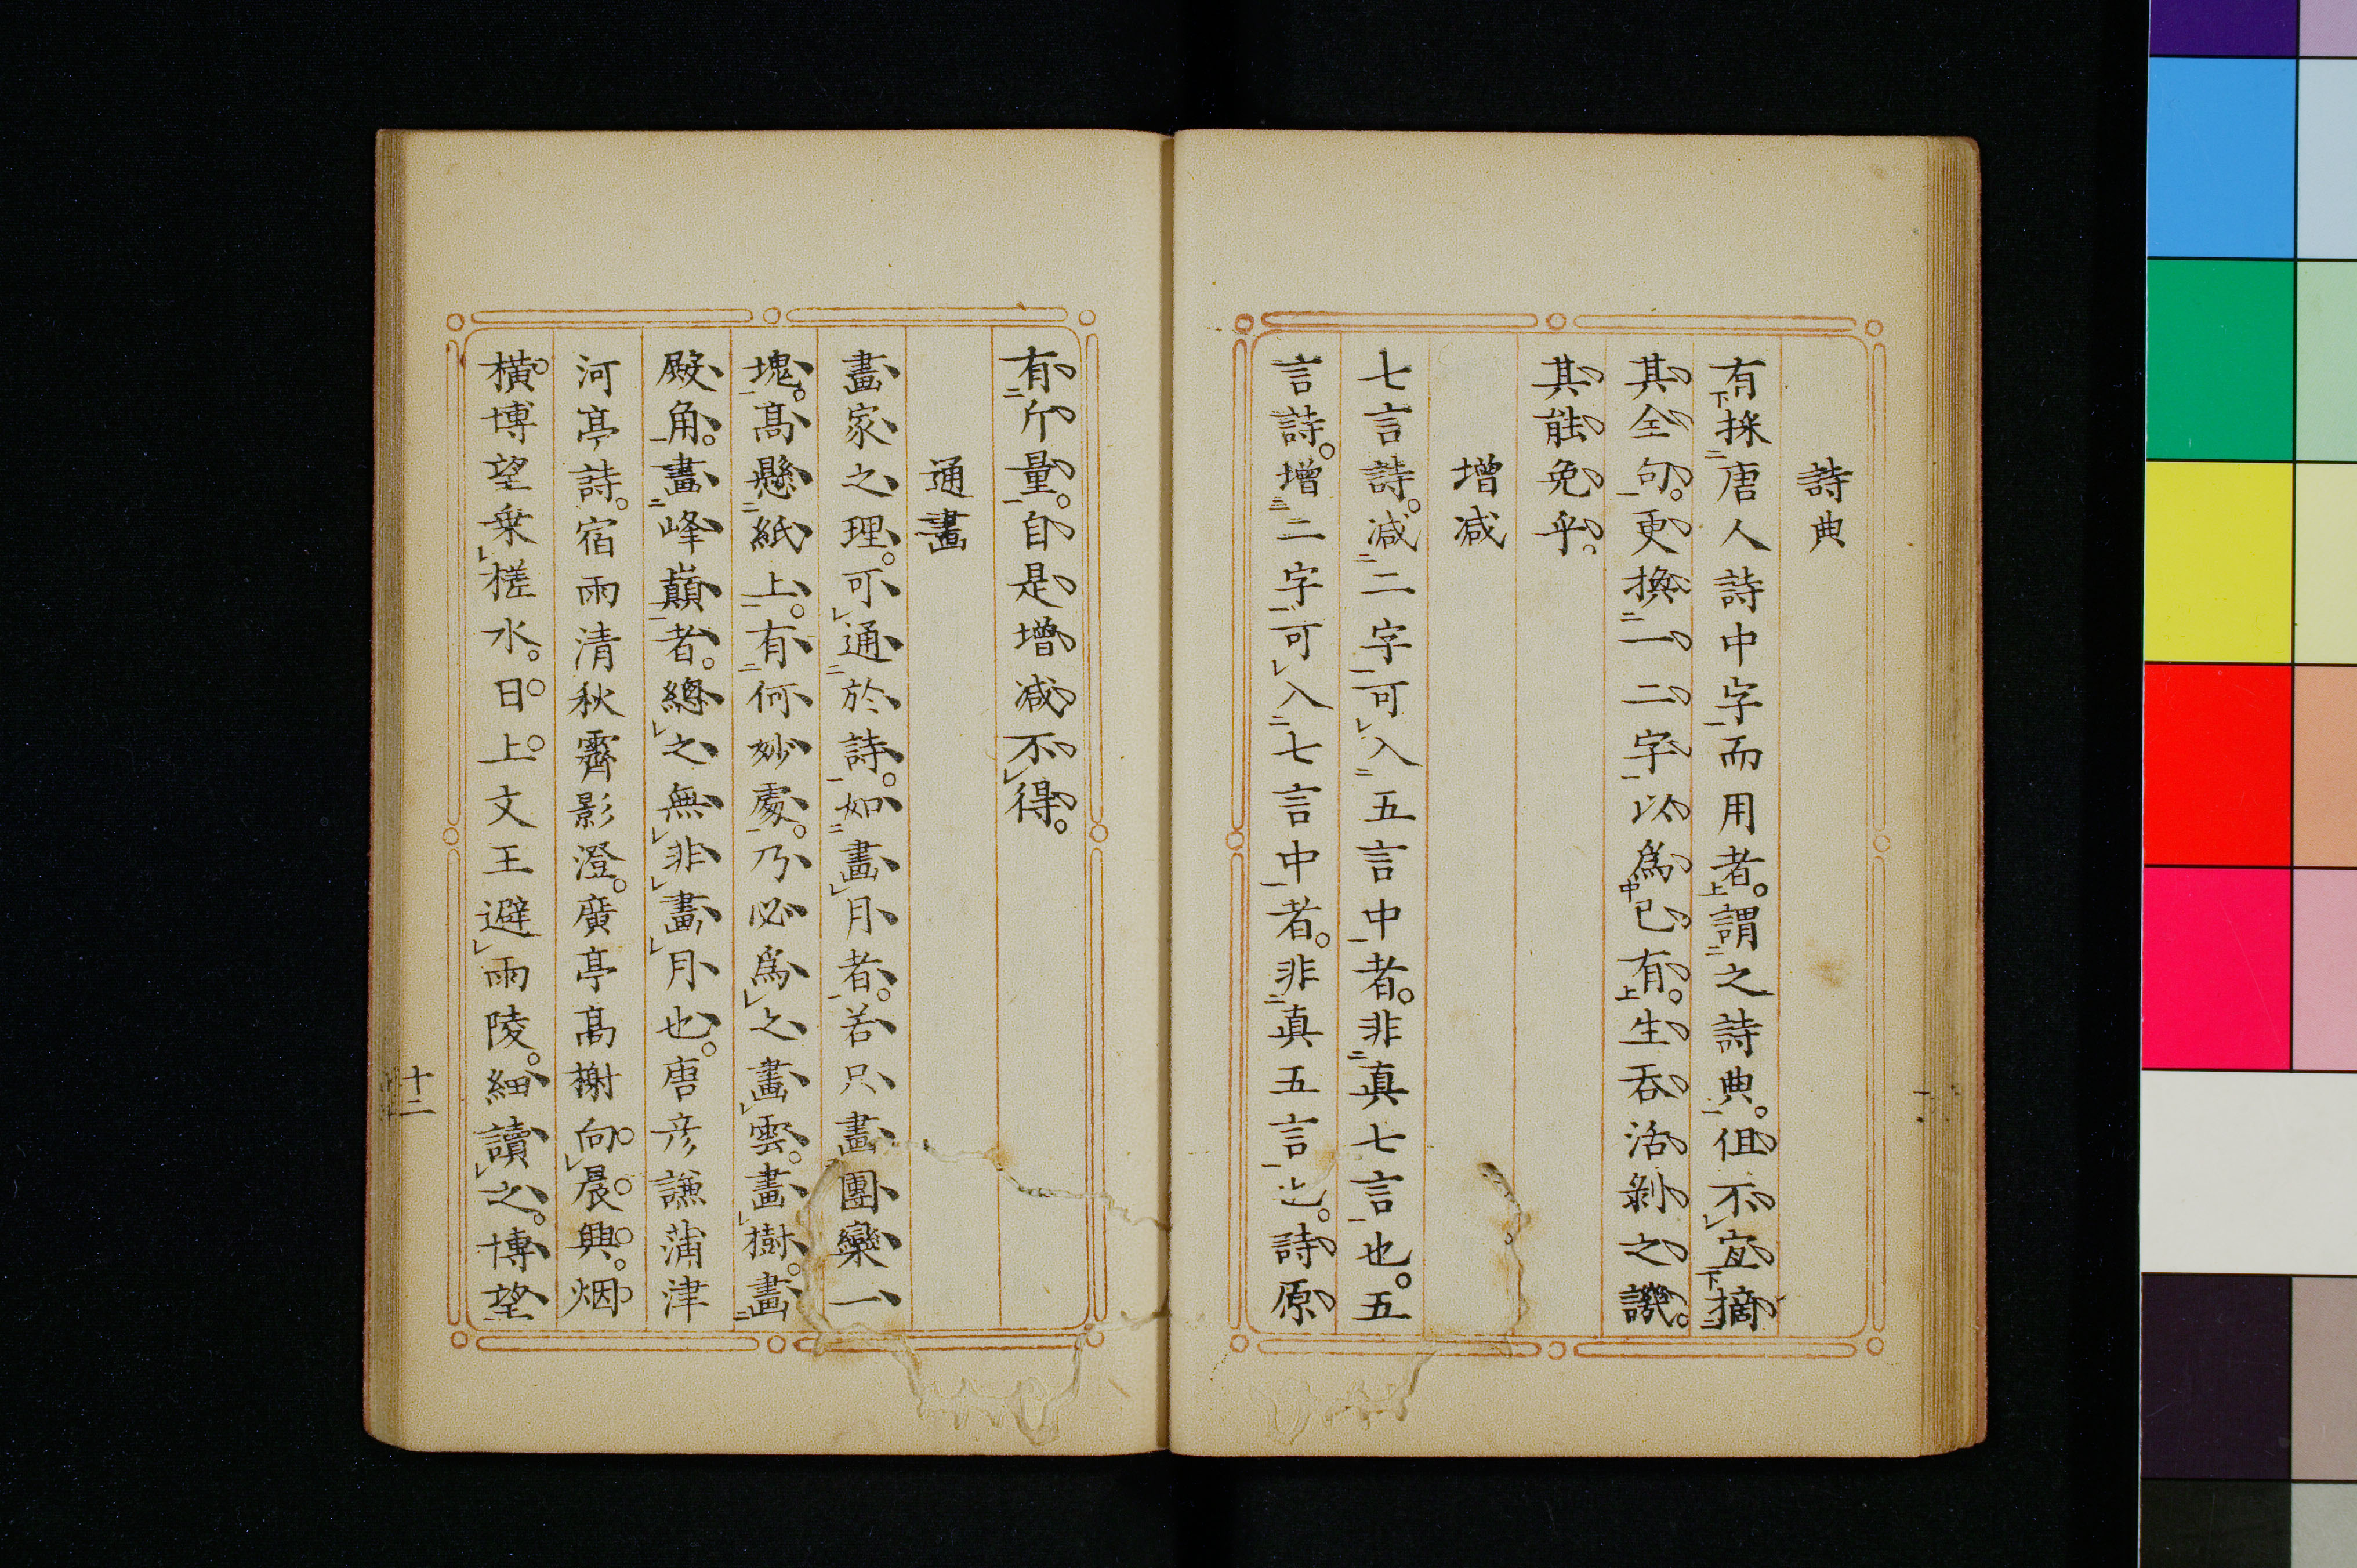 詩典
有採唐人詩中字而用者。謂之詩典。但不宜摘
其全句。更換一二字以為已有。生吞活剝之譏。
其能免乎。
增減
七言詩。減二字可入五言中者。非真七言也。五
言詩。增二字可入七言中者。非真五言也。詩原
有斤量。自是增減不得。
通畫
畫家之理。可通於詩。如畫月者。若只畫團欒一
塊。高懸紙上。有何妙處。乃必為之畫雲。畫樹。畫
殿角。畫峰巔者。總之無非畫月也。唐彥謙蒲津
河亭詩。宿雨清秋霽影澄。廣亭高榭向晨興。烟
橫博望乗槎水。日上文王避雨陵。細讀之。博望
十二